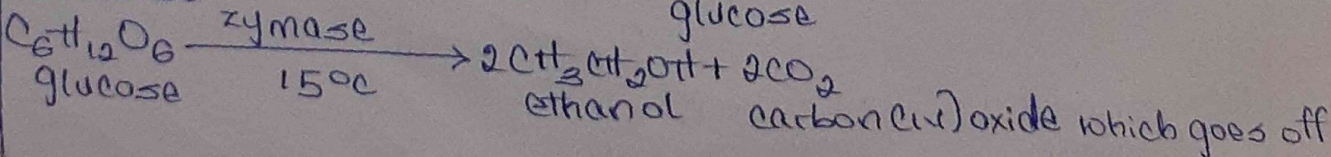 glucose
C6H12O6 zymase → 2CH3CH2OH + 2CO2
glucose 15°C ethanol carbon(iv)oxide which goes off